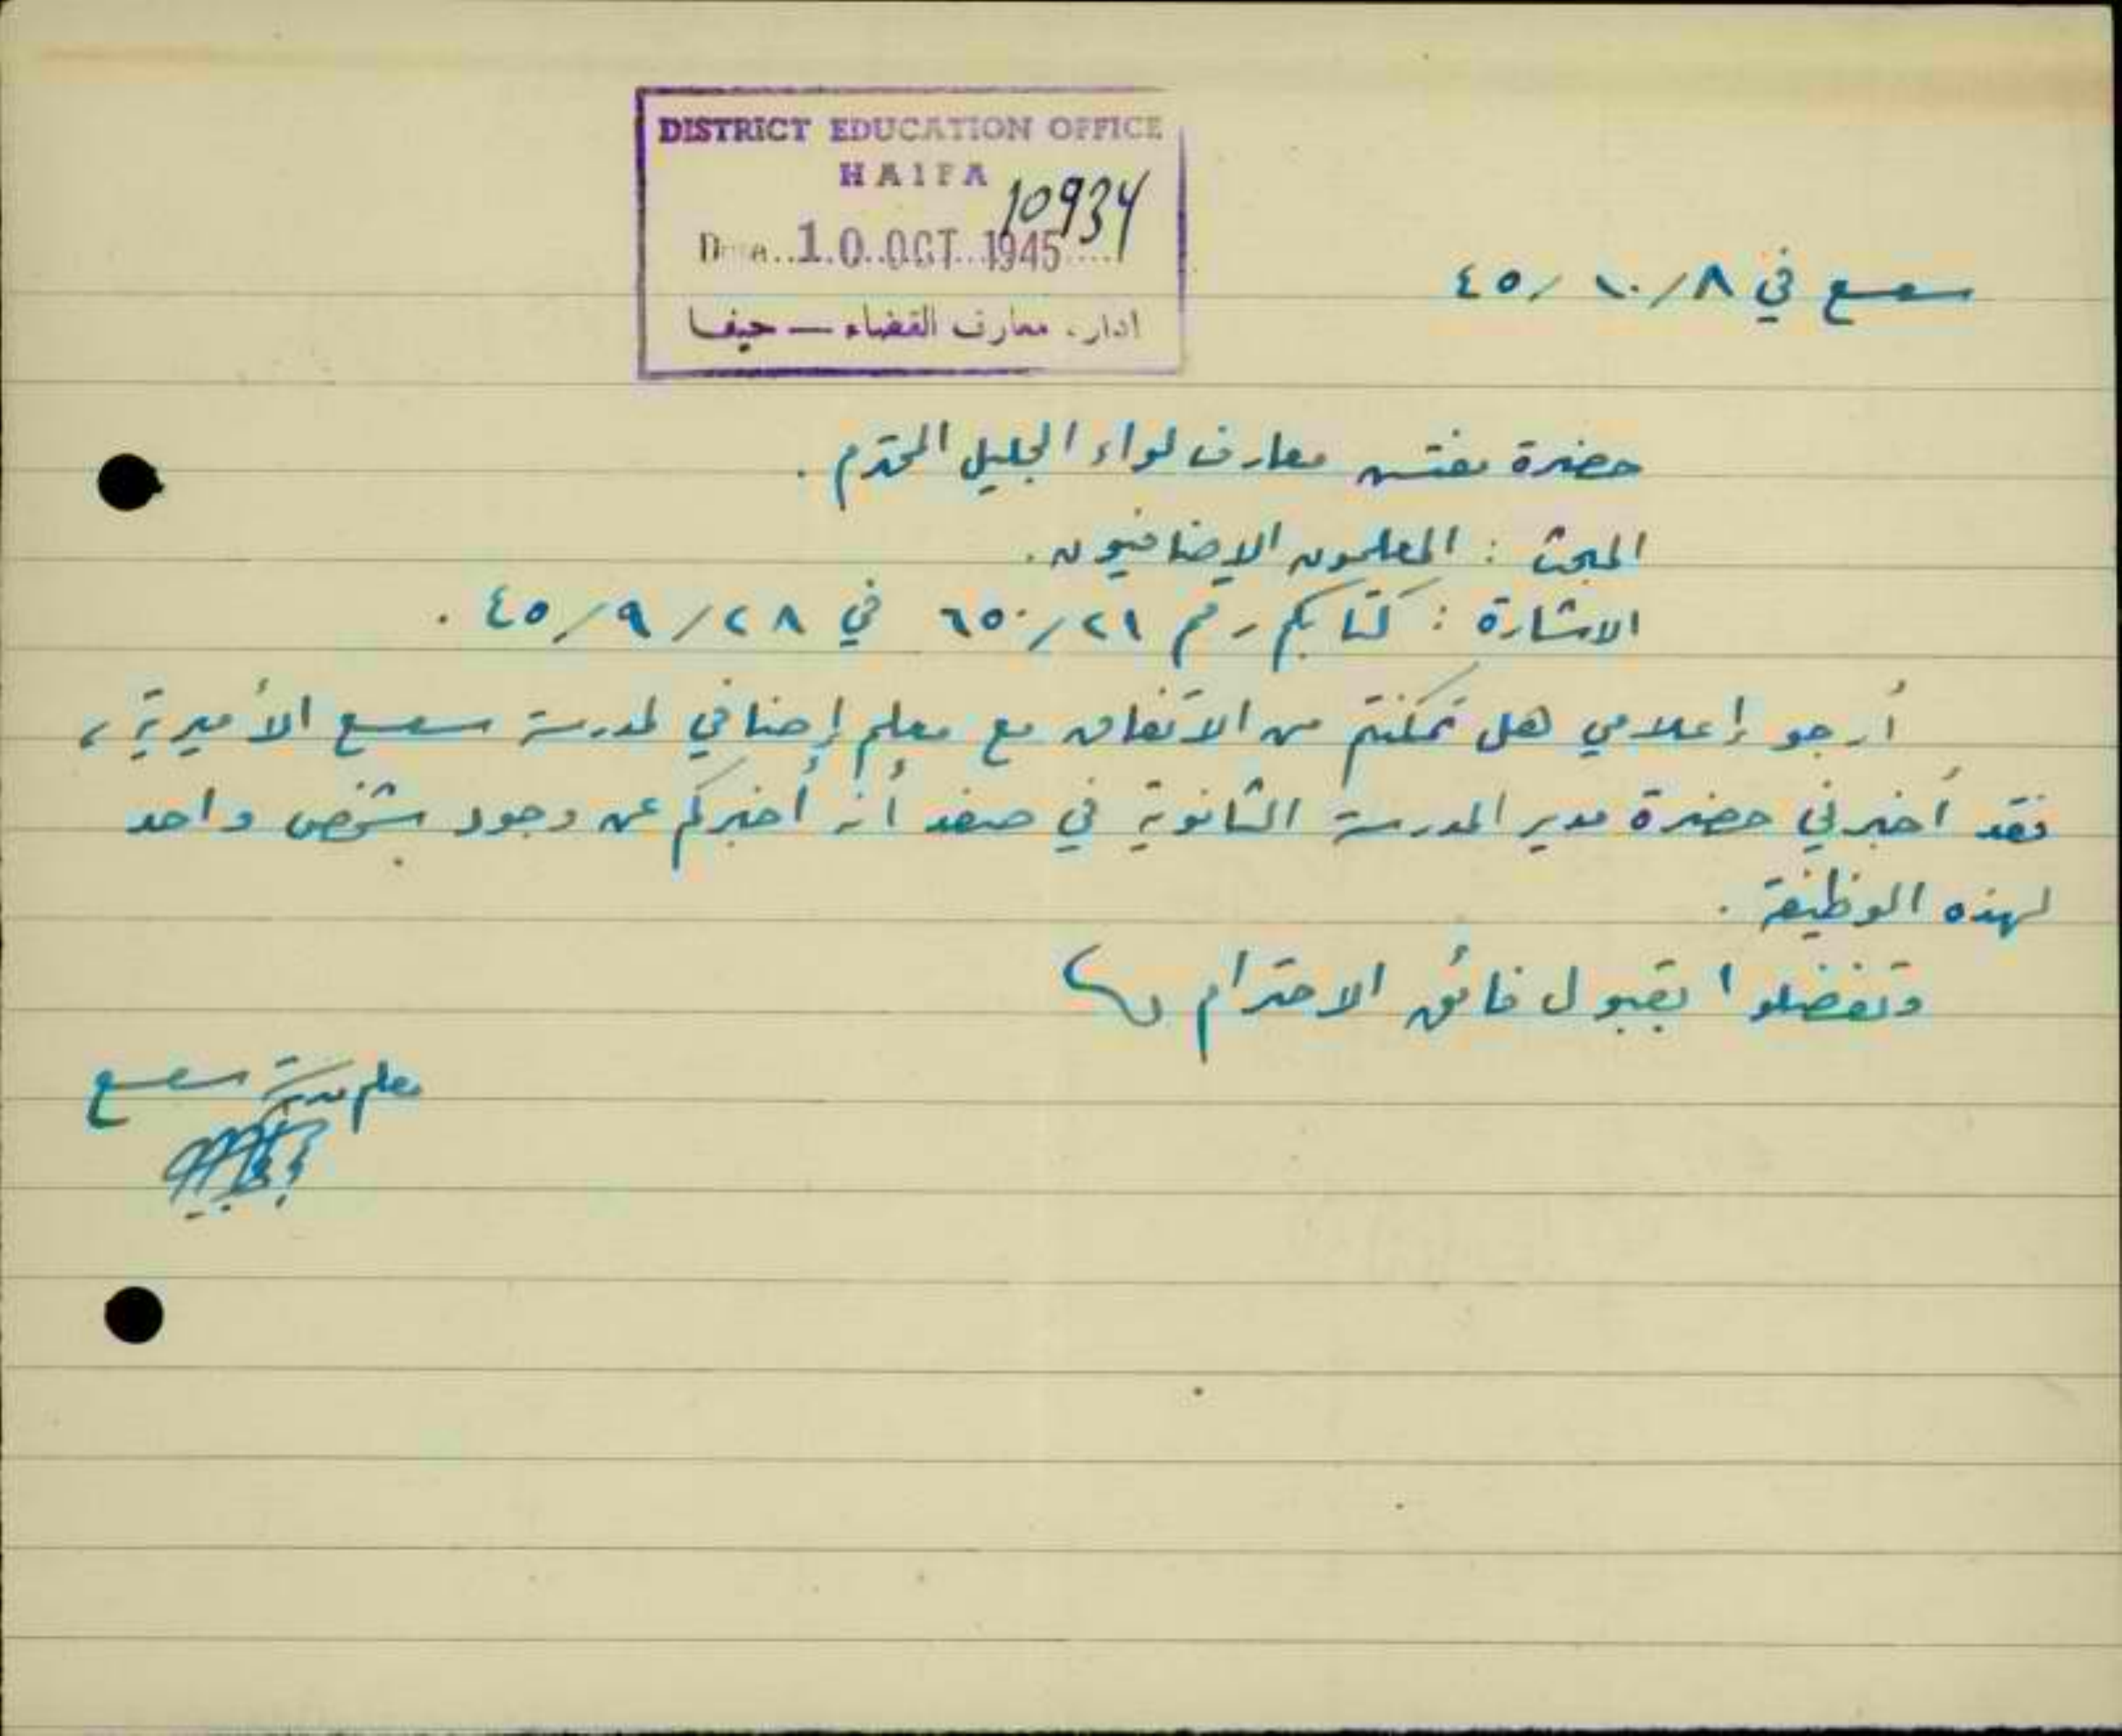 DISTRICT EDUCATION OFFICE
HAIFA
10934
Date..10..OCT..1945....
ادارة معارف القضاء — حيفا
سعسع في ٨/ ١٠/ ٤٥
حضرة مفتش معارف لواء الجليل المحترم .
المبحث : المعلمون الإضافيون .
الاشارة : كتابكم رقم ٢١/ ٦٥٠ في ٢٨/ ٩/ ٤٥ .
أرجو إعلامي هل تمكنتم من الاتفاق مع معلم إضافي لمدرسة سعسع الأميرية ،
فقد أخبرني حضرة مدير المدرسة الثانوية في صفد أنه أخبركم عن وجود شخص واحد
لهذه الوظيفة .
وتفضلوا بقبول فائق الاحترام
معلم مدرسة سعسع